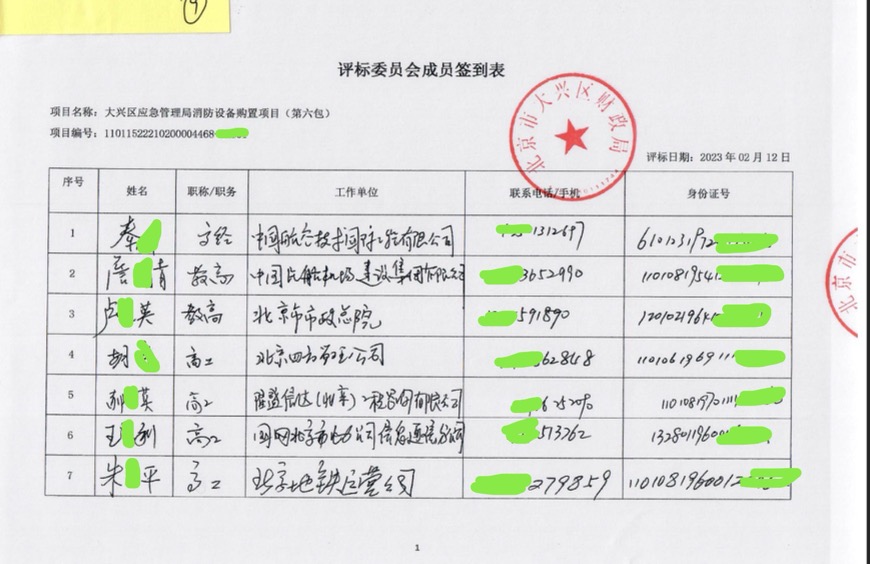 9
评标委员会成员签到表
项目名称：大兴区应急管理局消防设备购置项目（第六包）
项目编号：11011522210200004468
评标日期：2023年02月12日
北京市大兴区财政局
序号 姓名 职称/职务 工作单位 联系电话/手机 身份证号
1 秦 高经 中国航空技术国际工程有限公司 1312697 6101231972
2 唐 清 教高 中国民航机场建设集团有限公司 3652990 1101081954
3 卢 英 教高 北京市市政总院 591890 120102196
4 胡 高工 北京四方 公司 628468 110106196911
5 英 高工 隆盛信达（北京）工程咨询有限公司 110108197011
6 王 利 高工 国网北京市电力公司信息通信分公司 513262 132801196
7 朱 平 高工 北京地铁运营公司 279859 1101081960012
北京市
1